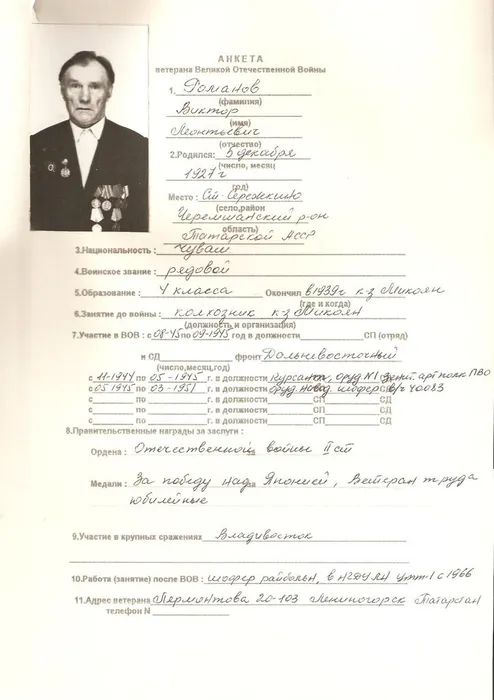 АНКЕТА
ветерана Великой Отечественной Войны
1. Романов
(фамилия)
Виктор
(имя)
Леонтьевич
(отчество)
2.Родился: 5 декабря
(число, месяц
1927г
год)
Место: Ст. Сережкино
(село,район
Черемшанский р-он
область)
Татарской АССР
3.Национальность: Чуваш
4.Воинское звание: рядовой
5.Образование: 4 класса Окончил в 1939г к-з Микоян
(где и когда)
6.Занятие до войны: колхозник к-з Микоян
(должность и организация)
7.Участие в ВОВ: с 08-45 по 09-1945 год в должности СП (отряд)
и СД фронт Дальневосточный
(число,месяц,год)
с 11-1944 по 05-1945 г. в должности курсант, оруд №1 зенит. арт полк ПВО
с 05 1945 по 03-1951 г. в должности оруд. шофер в/ч 40083
с по г. в должности СП СД
с по г. в должности СП СД
8.Правительственные награды за заслуги:
Ордена: Отечественной войны II ст
Медали: За победу над Японией, Ветеран труда
юбилейные
9.Участие в крупных сражениях Владивосток
10.Работа (занятие) после ВОВ: шофер райбольн, в НГДУ ЛН УТТ-1 с 1966
11.Адрес ветерана Лермонтова 20-103 Лениногорск Татарстан
телефон N